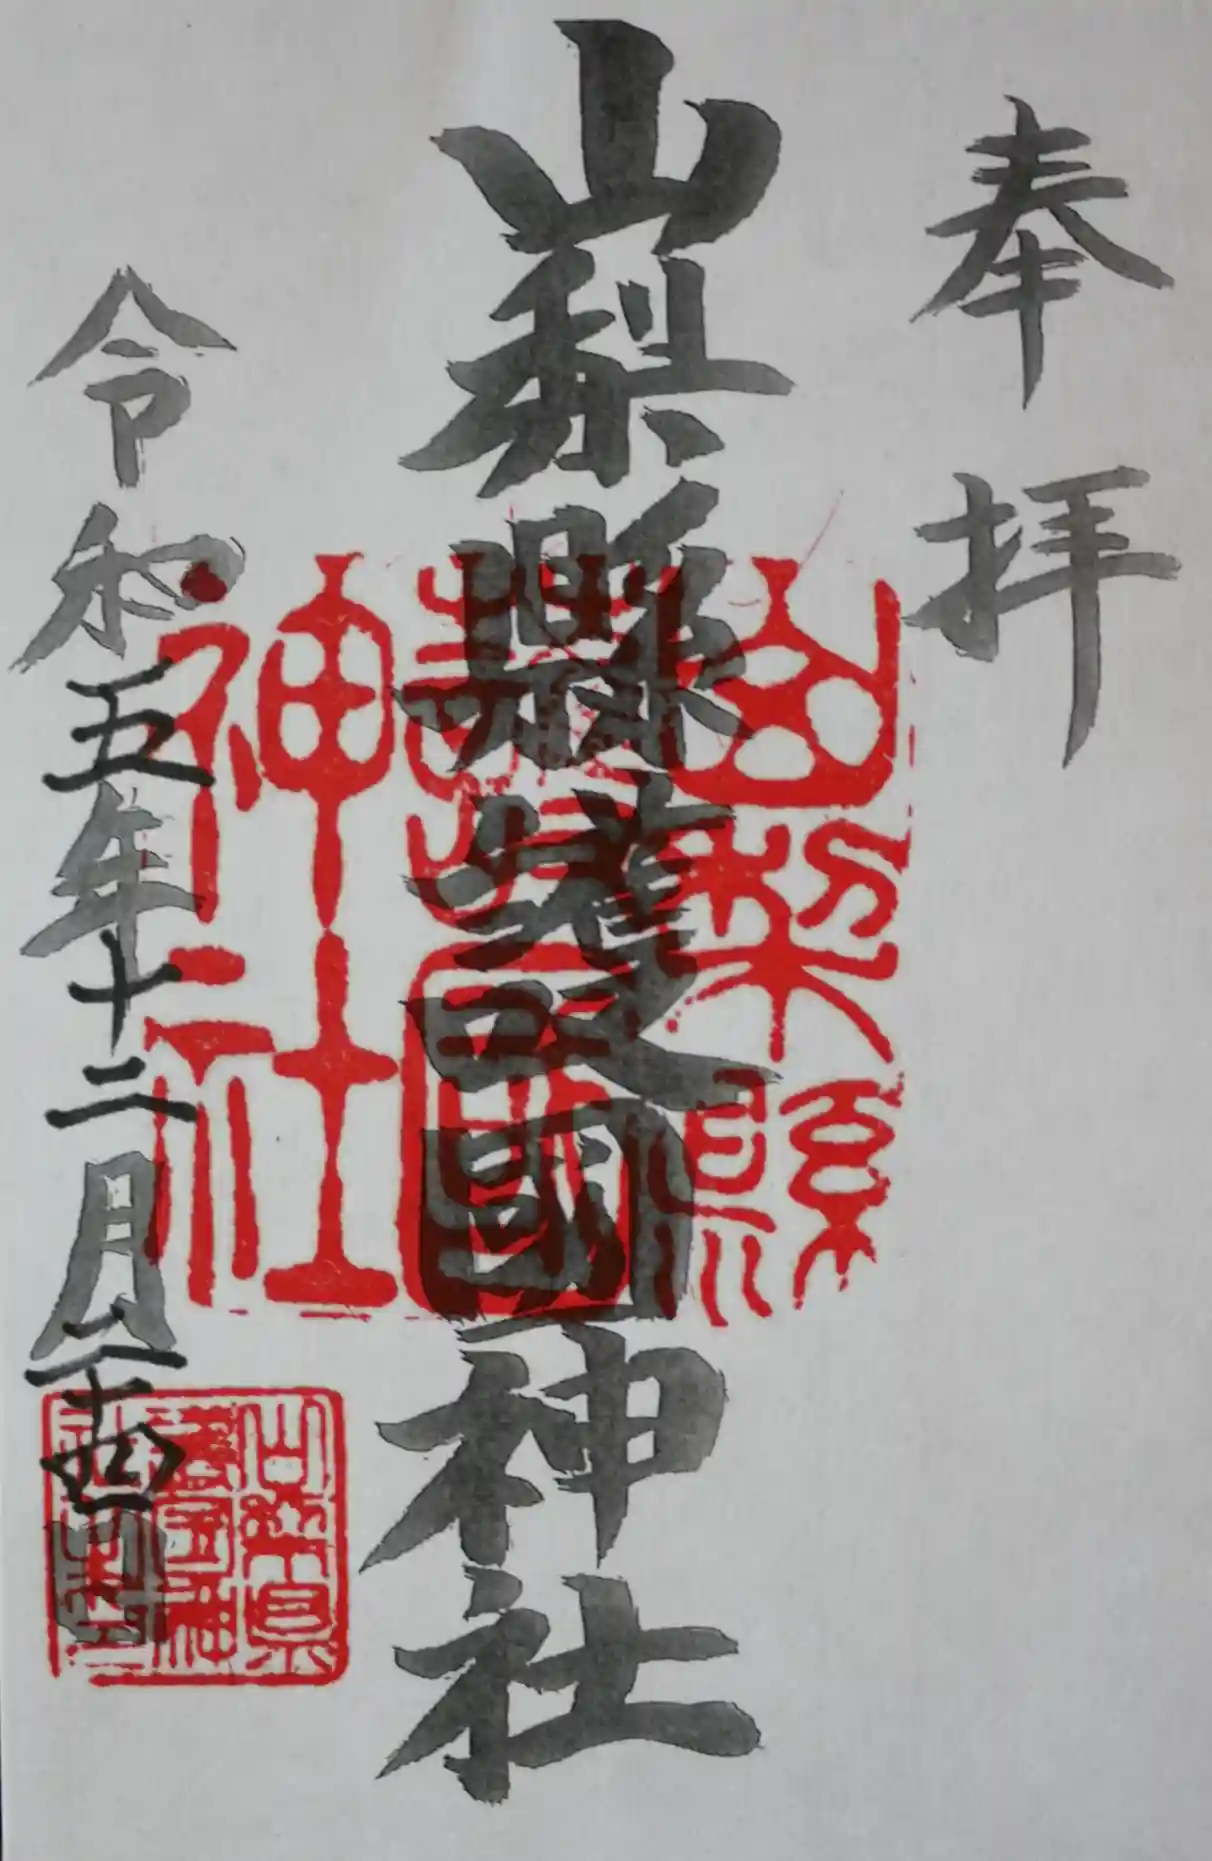 奉拝
山梨縣護國神社
令和五年十二月二十四日
山梨縣
護國
神社
山梨県
護国神
社